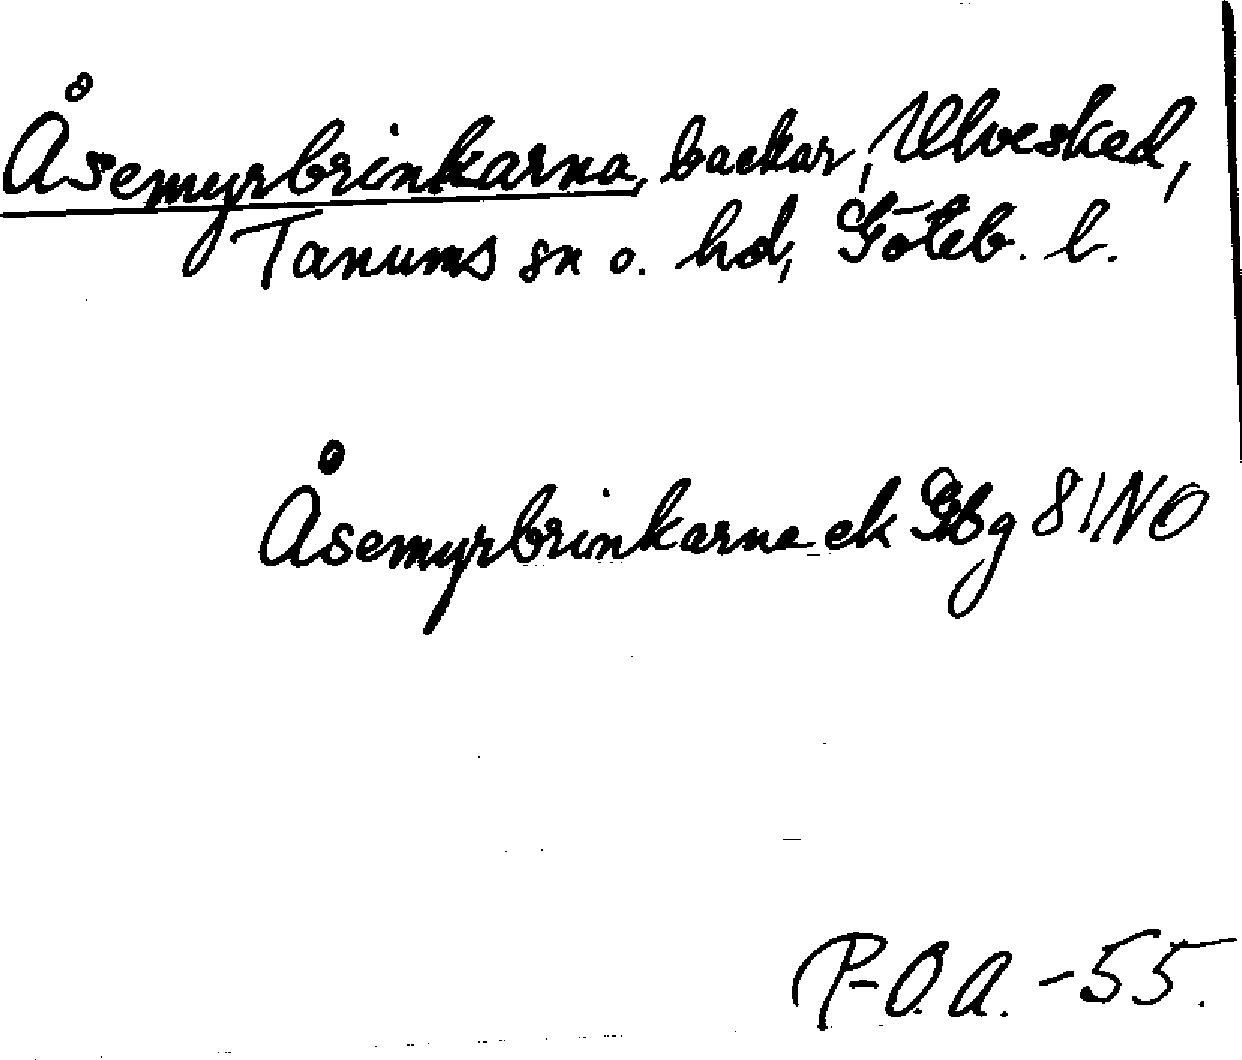 Åsemyrbrinkarna, backar, Ulvesked,
Tanums sn o. hd, Göteb. l.
Åsemyrbrinkarna ek Gbg 81NO
P-O.A. -55.